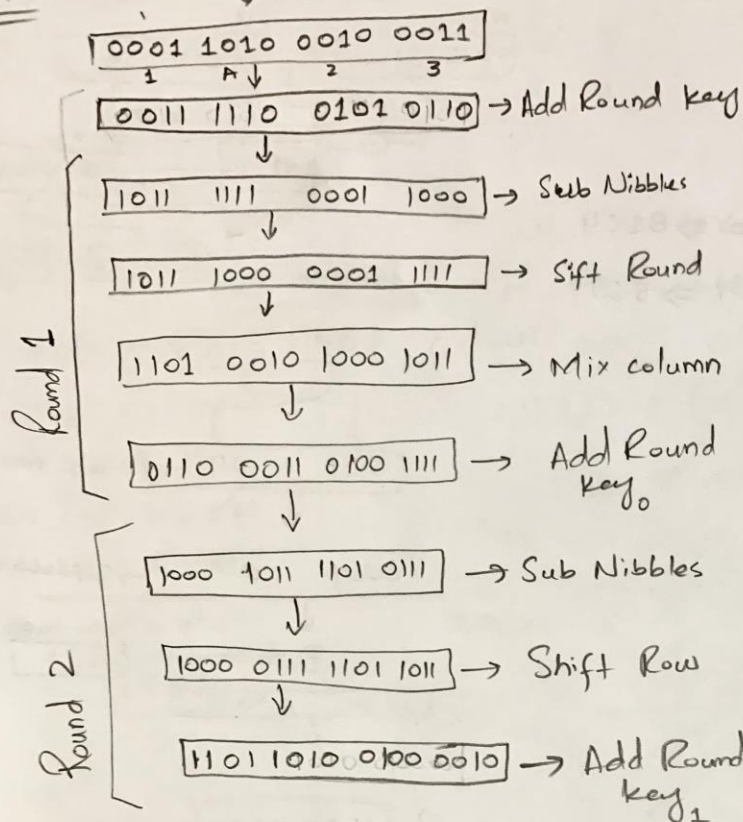 0001 1010 0010 0011
1 A 2 3
0011 1110 0101 0110 → Add Round key
1011 1111 0001 1000 → Sub Nibbles
1011 1000 0001 1111 → Sift Round
1101 0010 1000 1011 → Mix column
0110 0011 0100 1111 → Add Round
key₀
Round 1
1000 1011 1101 0111 → Sub Nibbles
1000 0111 1101 1011 → Shift Row
1101 1010 0100 0010 → Add Round
key₁
Round 2